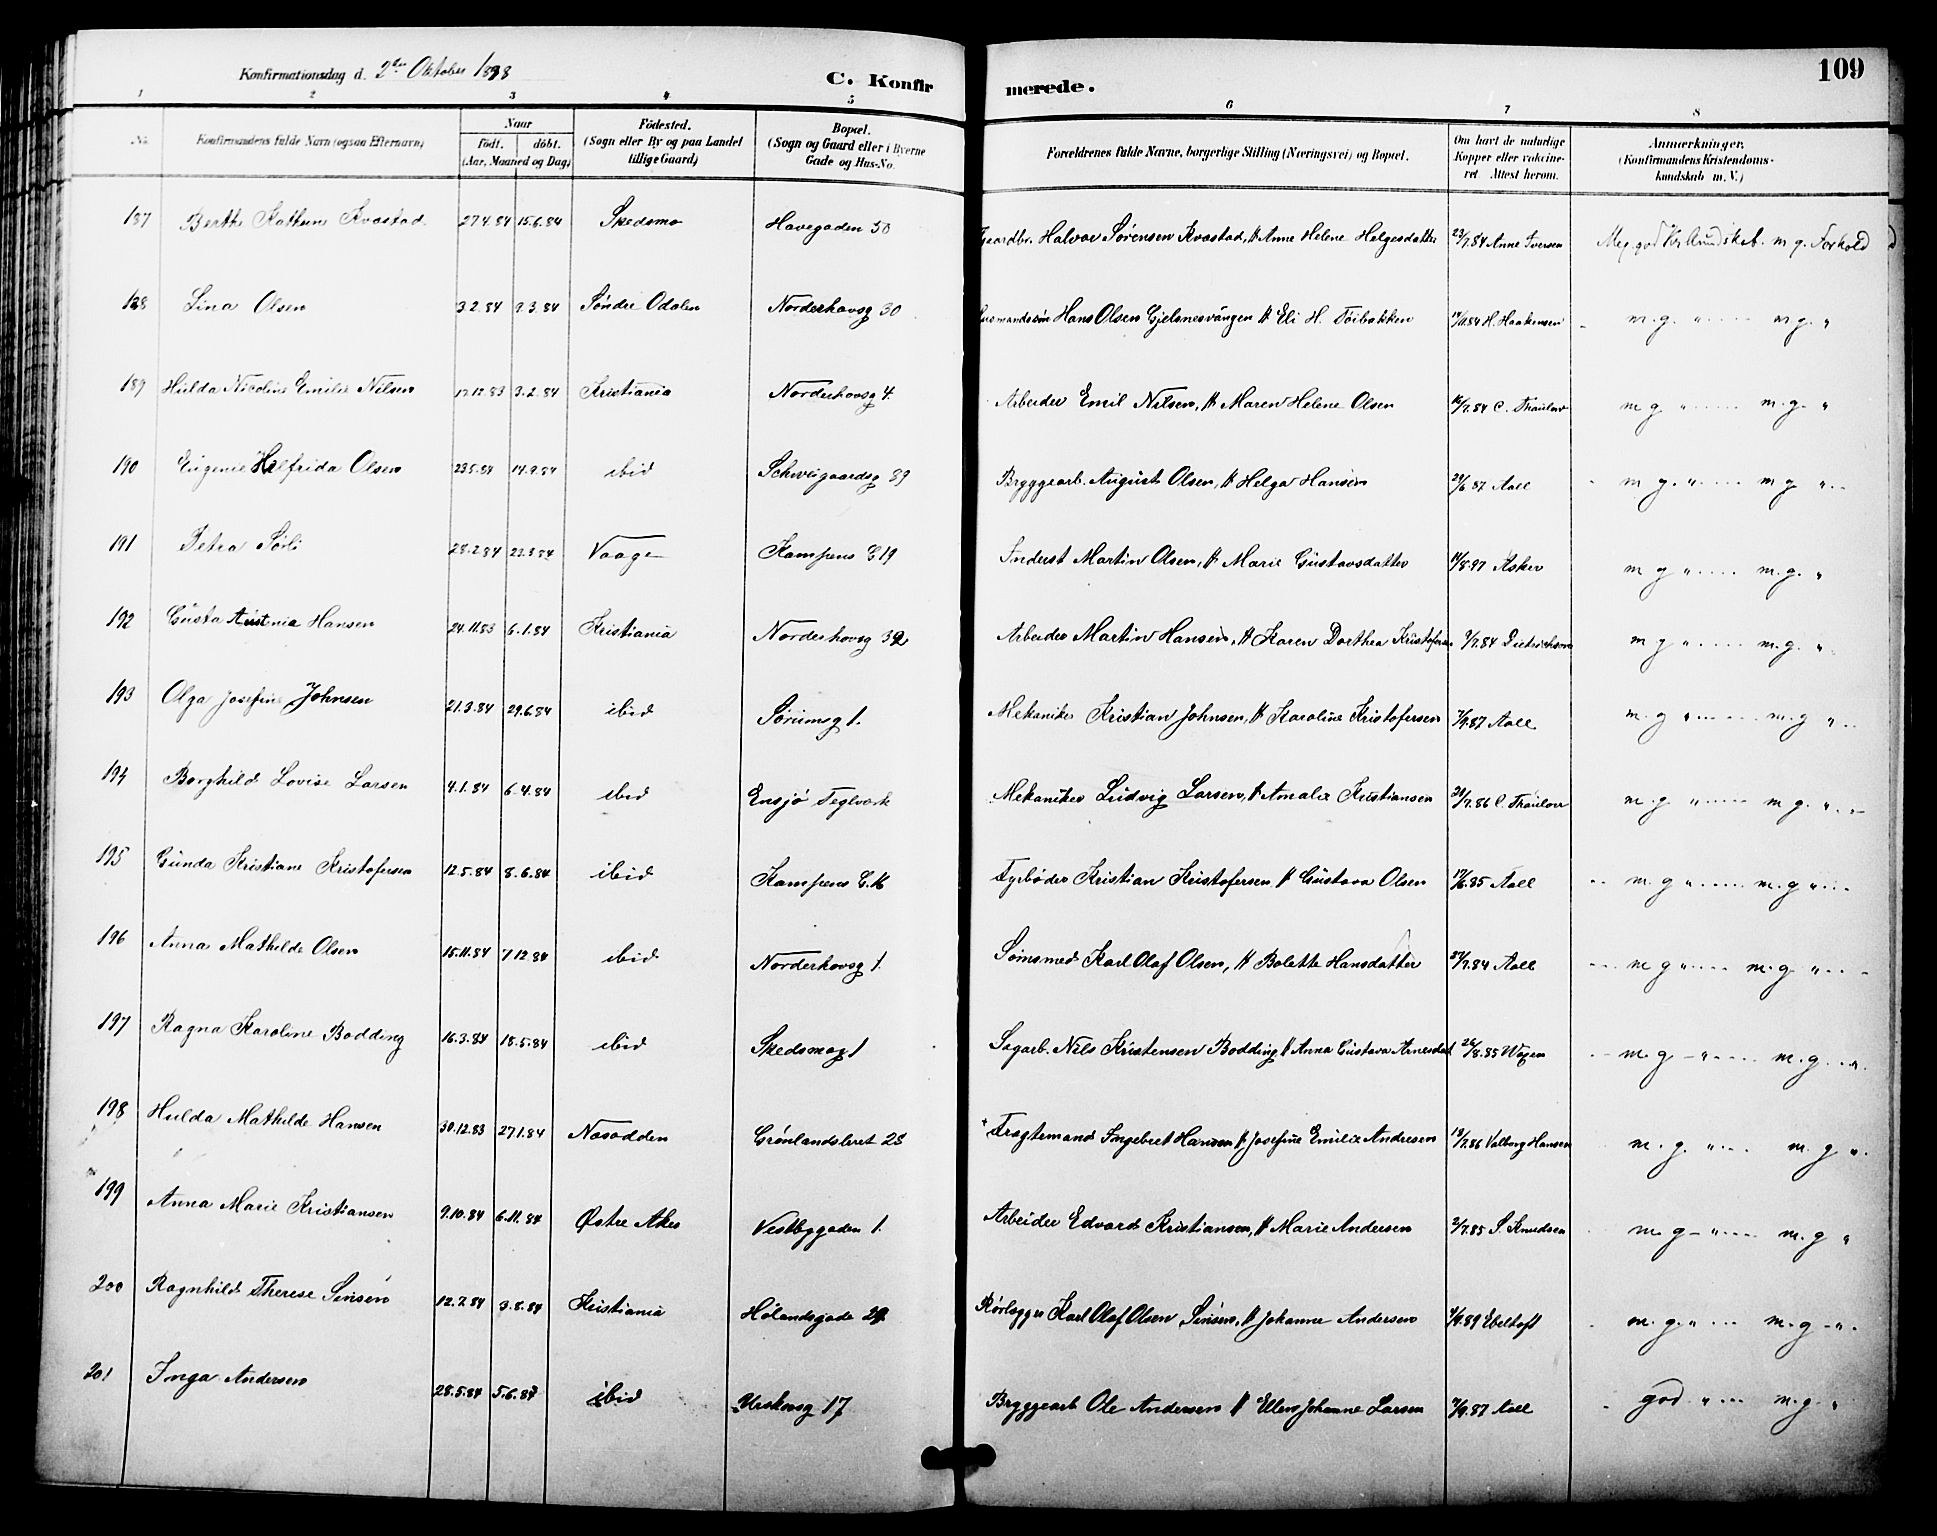 Konfirmationsdag d. 2den Oktober 1898
C. Konfirmerede.
109
1 2 3 4 5 6 7 8
No.
Konfirmandens fulde Navn (ogsaa Efternavn)
Naar
født. døbt.
(Aar, Maaned og Dag)
Fødested.
(Sogn eller By og paa Landet
tillige Gaard)
Bopæl.
(Sogn og Gaard eller i Byerne
Gade og Hus-No.
Forældrenes fulde Navne, borgerlige Stilling (Næringsvei) og Bopæl.
Om havt de naturlige
Kopper eller vaccine-
ret. Attest herom.
Anmærkninger.
(Konfirmandens Kristendoms-
kundskab m. V.)
187 Berthe Kathrine Kvastad 27.4.84 15.6.84 Skedsmo Havegaden 50 Gaardbr. Halvor Sørensen Kvastad, & Anne Helene Helgesdatter 23/7.84 Anne Iversen Meg. god Kundskab. m g. Forhold
188 Lina Olsen 3.2.84 9.3.84 Søndre Odalen Norderhovsg 30 Hans Olsen & Eli H. 84 H. Haakensen m.g. " m g. "
189 Hulda Nicoline Emilie Nilsen 17.12.83 3.2.84 Kristiania Norderhovsg 4. Arbeider Emil Nilsen, & Maren Helene Olsen 16/7.84 C. Thaulow m g. " m.g. "
190 Eugenie Helfrida Olsen 23.5.84 14.9.84 ibid Schweigaardsg 89 Bryggearb. August Olsen, & Helga Hansen 29/6.87 Aall m g. " m g "
191 Petra Sørli 28.2.84 23.3.84 Vaage Kampens G 19 Inderst Martin Olsen, & Marie Gustavsdatter 14/8.97 Asker m g " m.g. "
192 Gusta Hansen 24.11.83 6.1.84 Kristiania Norderhovsg 32 Arbeider Martin Hansen, & Karen Dorthea Kristofersen 9/7.84 Dietrichson m g " m.g. "
193 Olga Josefine Johnsen 21.3.84 29.6.84 ibid Sørumsg 1. Mekaniker Kristian Johnsen, & Karoline Kristofersen 7/9.87 Aall m.g " m.g "
194 Borghild Lovise Larsen 4.1.84 6.4.84 ibid Ensjø Teglverk Mekaniker Ludvig Larsen, & Amalie Kristiansen 21/7.86 C. Thaulow m.g " m g. "
195 Gunda Kristiane Kristofersen 12.5.84 8.6.84 ibid Kampens G. 16 Fyrbøder Kristian Kristofersen & Gustava Olsen 17/6.85 Aall m.g " m.g "
196 Anna Mathilde Olsen 15.11.84 7.12.84 ibid Norderhovsg 1. Sømsmed Karl Olaf Olsen, & Bolette Hansdatter 27/7.84 Aall m g " m.g "
197 Ragna Karoline Bodding 16.3.84 18.5.84 ibid Skedsmog 1 Sagarb. Nils Kristensen Bodding & Anna Gustava Arnesdat 26/8.85 m.g " m.g "
198 Hulda Mathilde Hansen 30.12.83 27.1.84 Nesodden Grønlandsleret 28 Fragtemand Ingebret Hansen & Josefine Emilie Andresen 18/7.86 Valborg Hansen m.g. " m.g "
199 Anna Marie Kristiansen 9.10.84 6.11.84 Østre Aker Vestbygaden 1. Arbeider Edvard Kristiansen, & Marie Andersen 2/7.85 S. Knudsen m.g " m.g "
200 Ragnhild Therese Sinsen 12.7.84 3.8.84 Kristiania Hølandsgade 29. Rørlægger Karl Olaf Olsen Sinsen, & Johanne Andersen 7/9.89 Ebeltoft m.g. " m.g "
201 Inga Andersen 28.5.84 5.6.87 ibid Urskovsg 17 Bryggearb Ole Andersen & Ellen Johanne Larsen 7/9.87 Aall god " m.g "